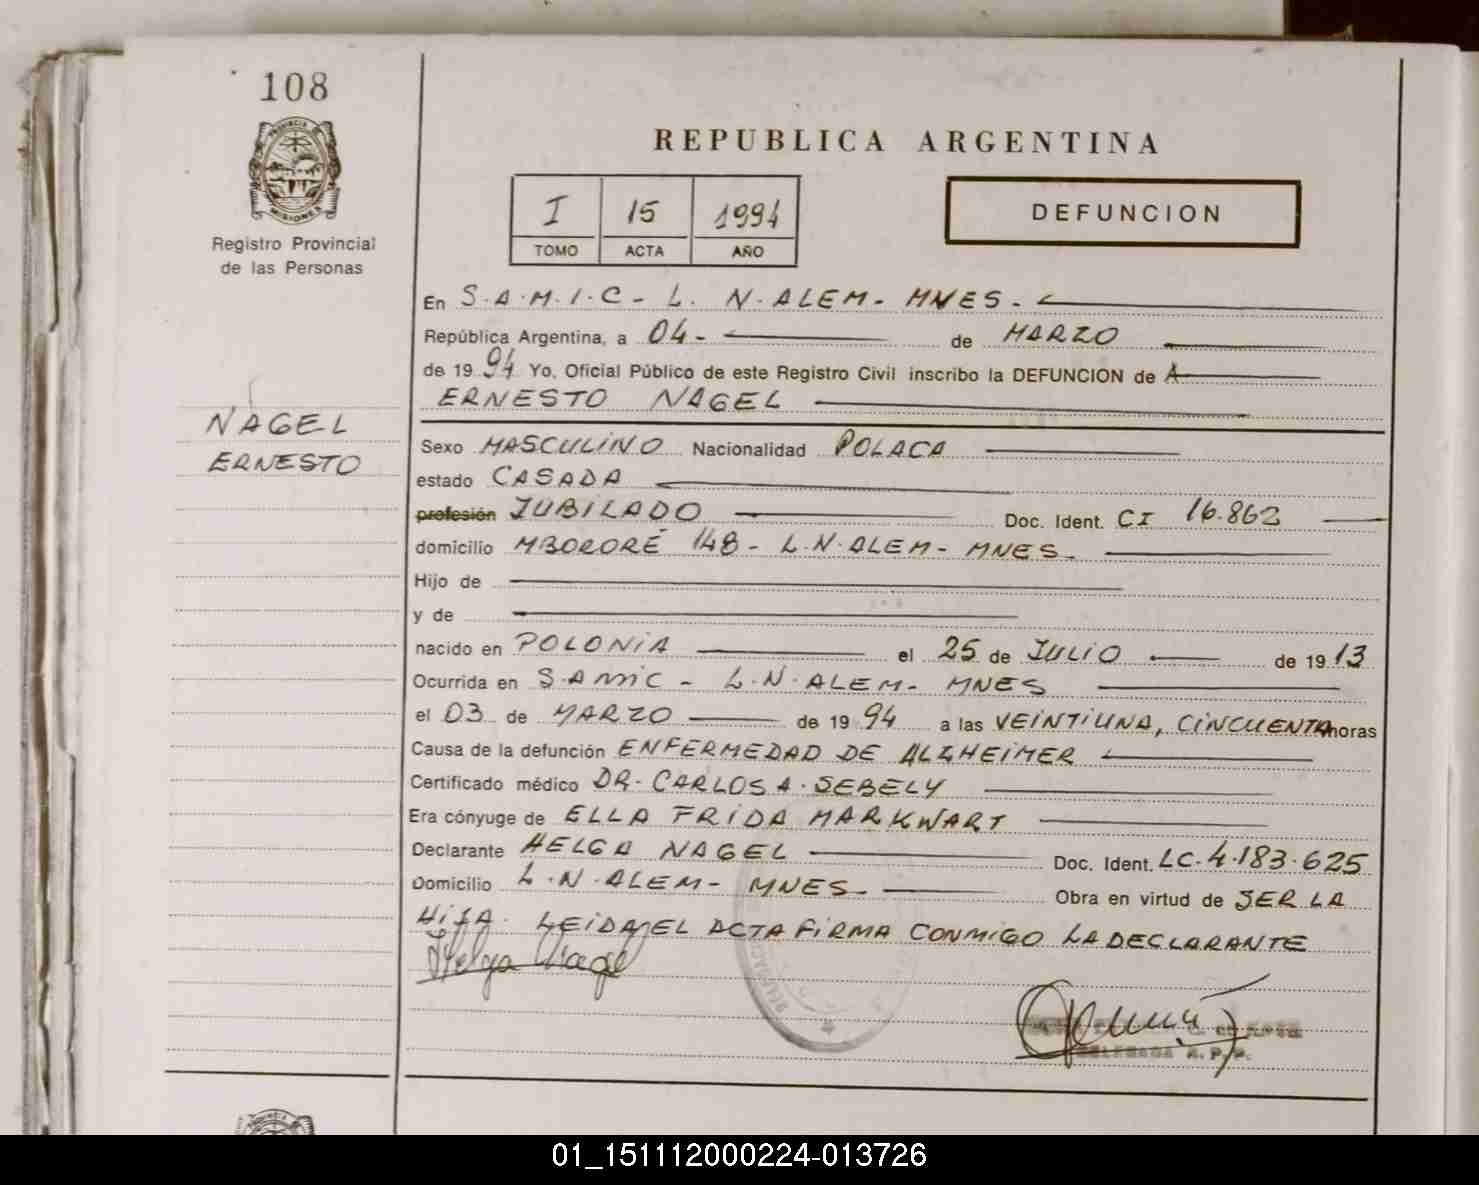 108
PROVINCIA DE
MISIONES
Registro Provincial
de las Personas
NAGEL
ERNESTO
REPUBLICA ARGENTINA
I 15 1994
TOMO ACTA AÑO
DEFUNCION
En S.A.M.I.C - L. N. ALEM - MNES.
República Argentina, a 04 - de MARZO
de 1994 Yo, Oficial Público de este Registro Civil inscribo la DEFUNCION de A
ERNESTO NAGEL
Sexo MASCULINO Nacionalidad POLACA
estado CASADA
profesión JUBILADO Doc. Ident. CI 16.862
domicilio MBORORÉ 148 - L.N. ALEM - MNES.
Hijo de
y de
nacido en POLONIA el 25 de JULIO de 1913
Ocurrida en S.AMIC - L.N. ALEM - MNES
el 03 de MARZO de 1994 a las VEINTIUNA, CINCUENTA horas
Causa de la defunción ENFERMEDAD DE ALZHEIMER
Certificado médico DR. CARLOS A. SEBELY
Era cónyuge de ELLA FRIDA MARKWART
Declarante HELGA NAGEL Doc. Ident. LC. 4.183.625
Domicilio L.N. ALEM - MNES. Obra en virtud de SER LA
HIJA. LEIDA EL ACTA FIRMA CONMIGO LA DECLARANTE
Helga Nagel
DELEGADA R.P.P.
PROVINCIA
01_151112000224-013726